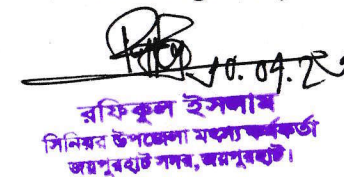 10.04.2
রফিকুল ইসলাম
সিনিয়র উপজেলা মৎস্য কর্মকর্তা
জয়পুরহাট সদর, জয়পুরহাট।